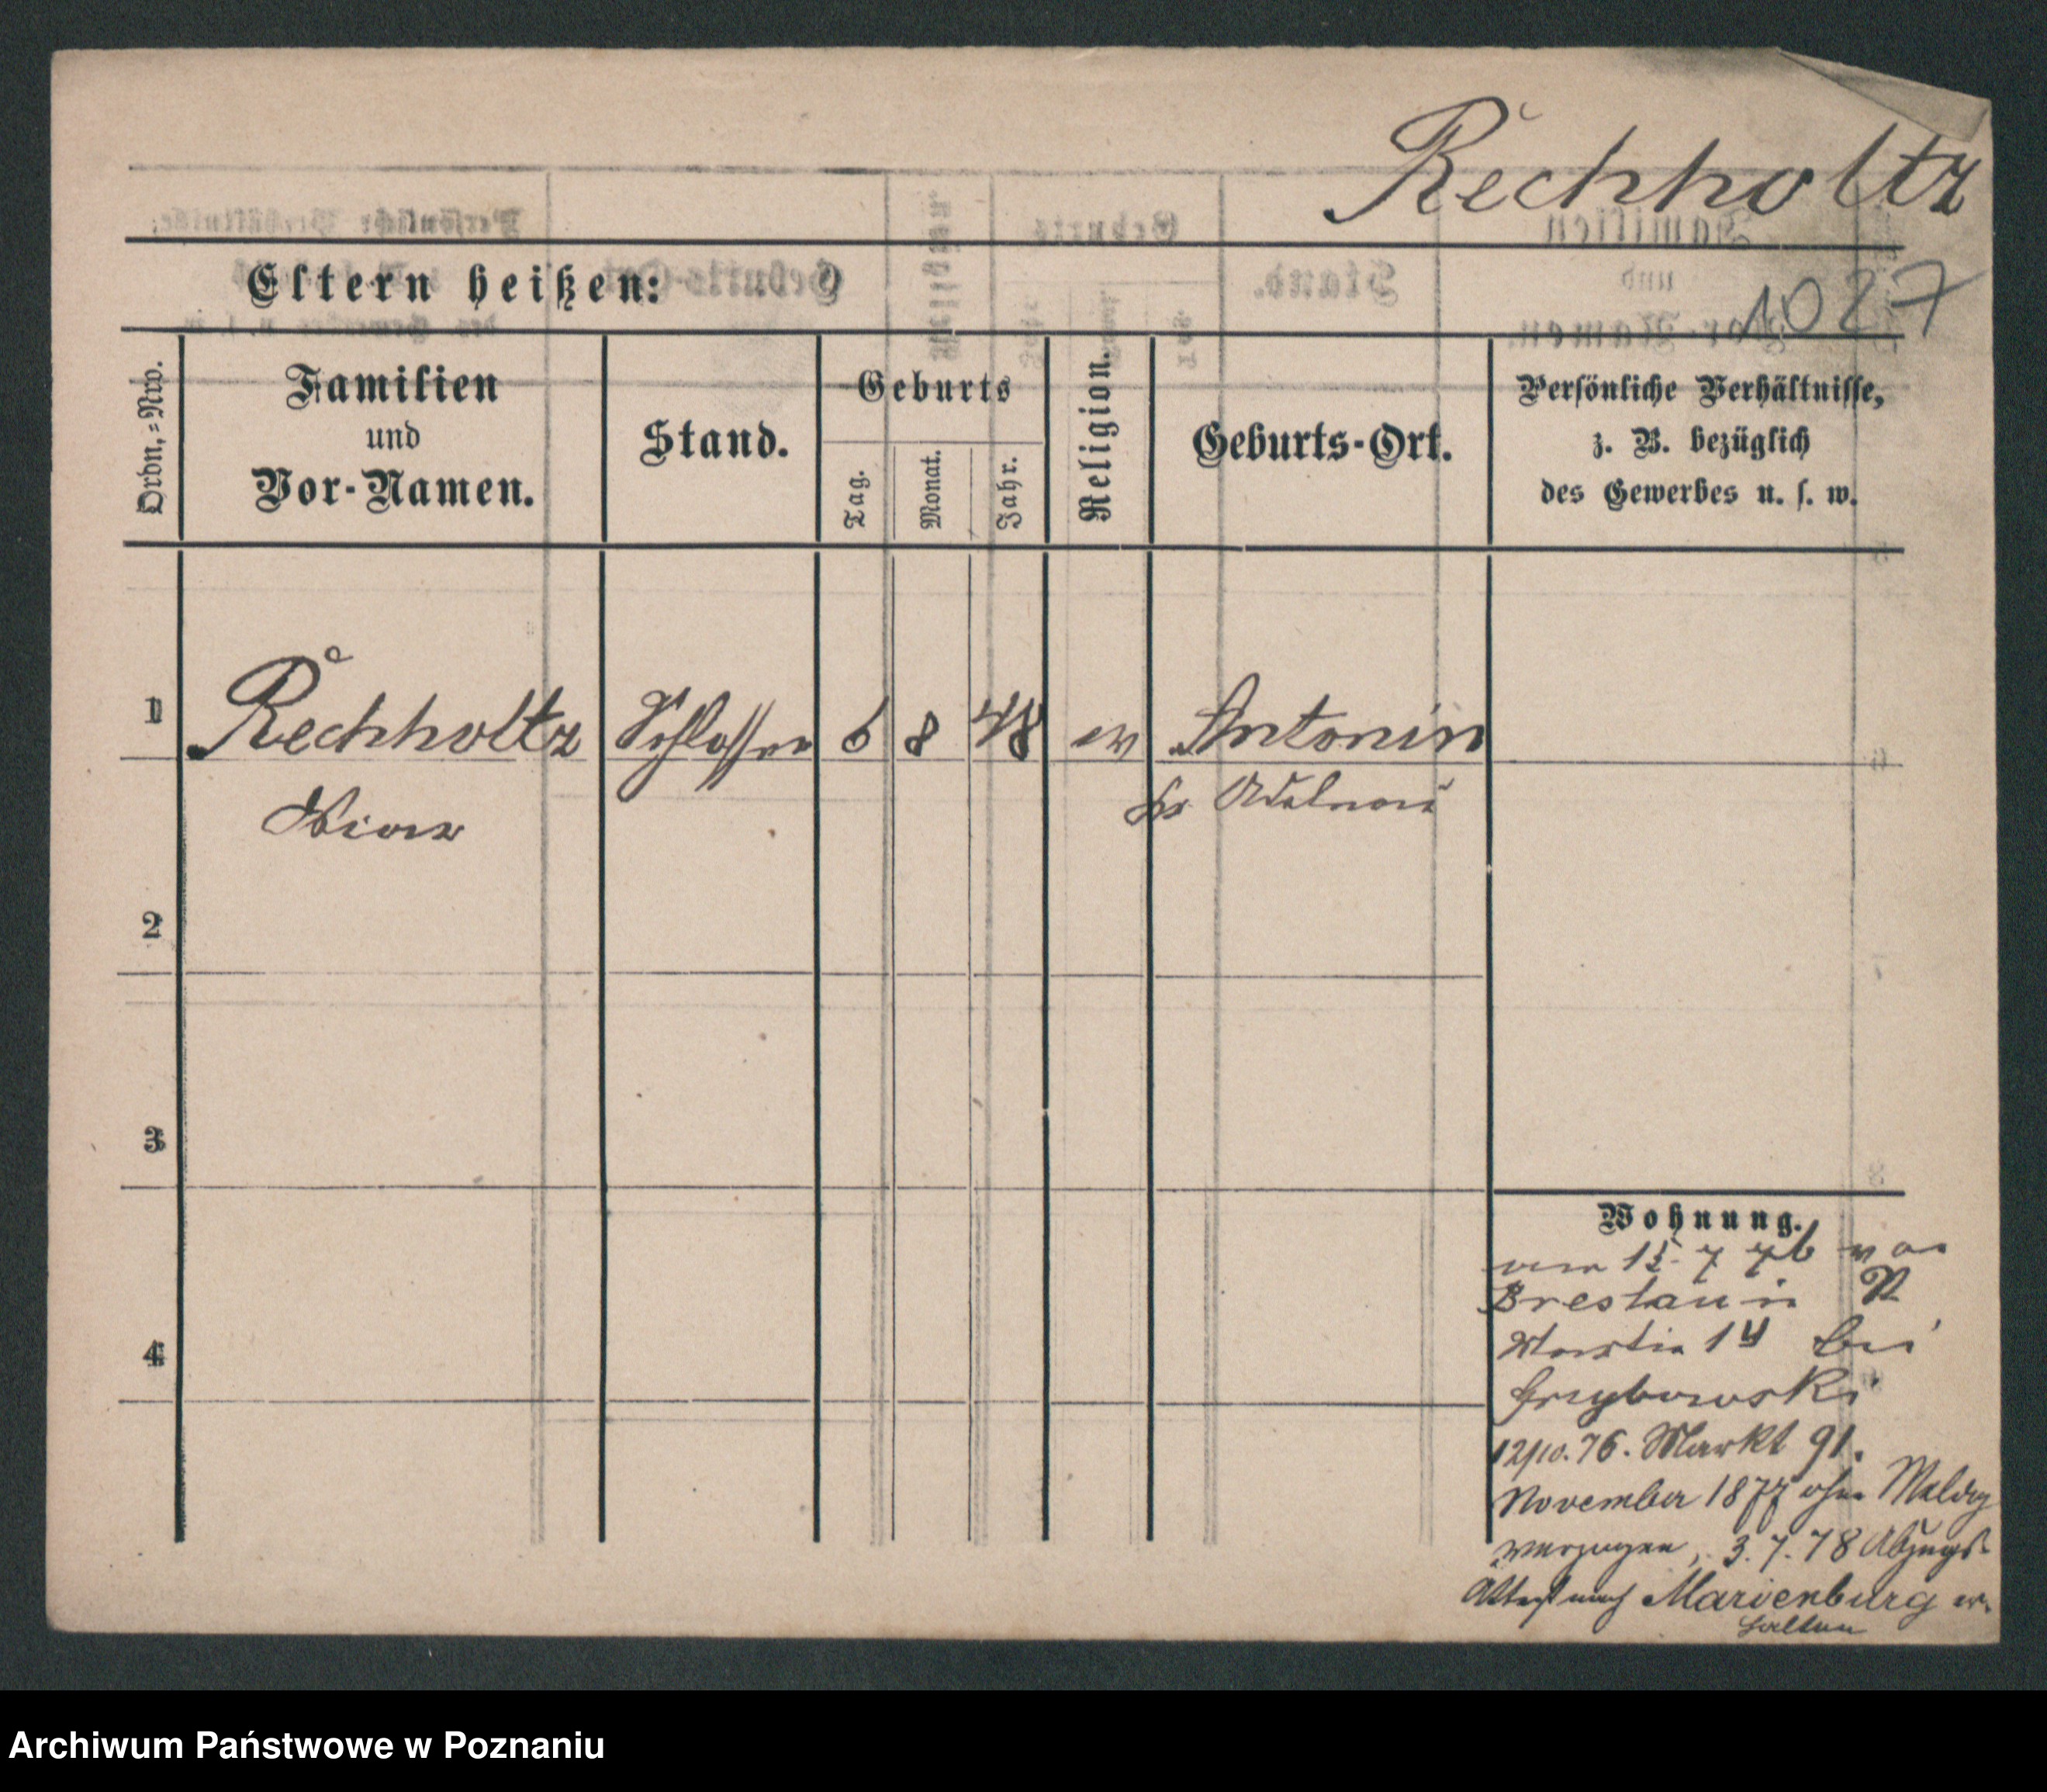 Rechholtz
1027
Eltern heißen:
Ordn.=Nro.
Familien
und
Vor-Namen.
Stand.
Geburts
Tag.
Monat.
Jahr.
Religion.
Geburts-Ort.
Persönliche Verhältnisse,
z. B. bezüglich
des Gewerbes u. s. w.
1 Rechholtz Schlosser 6 8 48 ev Antonin
Kr. Adelnau
2
3
4
Wohnung.
15. 7 76 von
Breslau in
14 bei
Grzybowski
12/10. 76. Markt 91.
November 1877 ohne Meldg
verzogen, 3. 7. 78 Abzugs-
Attest nach Marienburg er-
halten
Archiwum Państwowe w Poznaniu